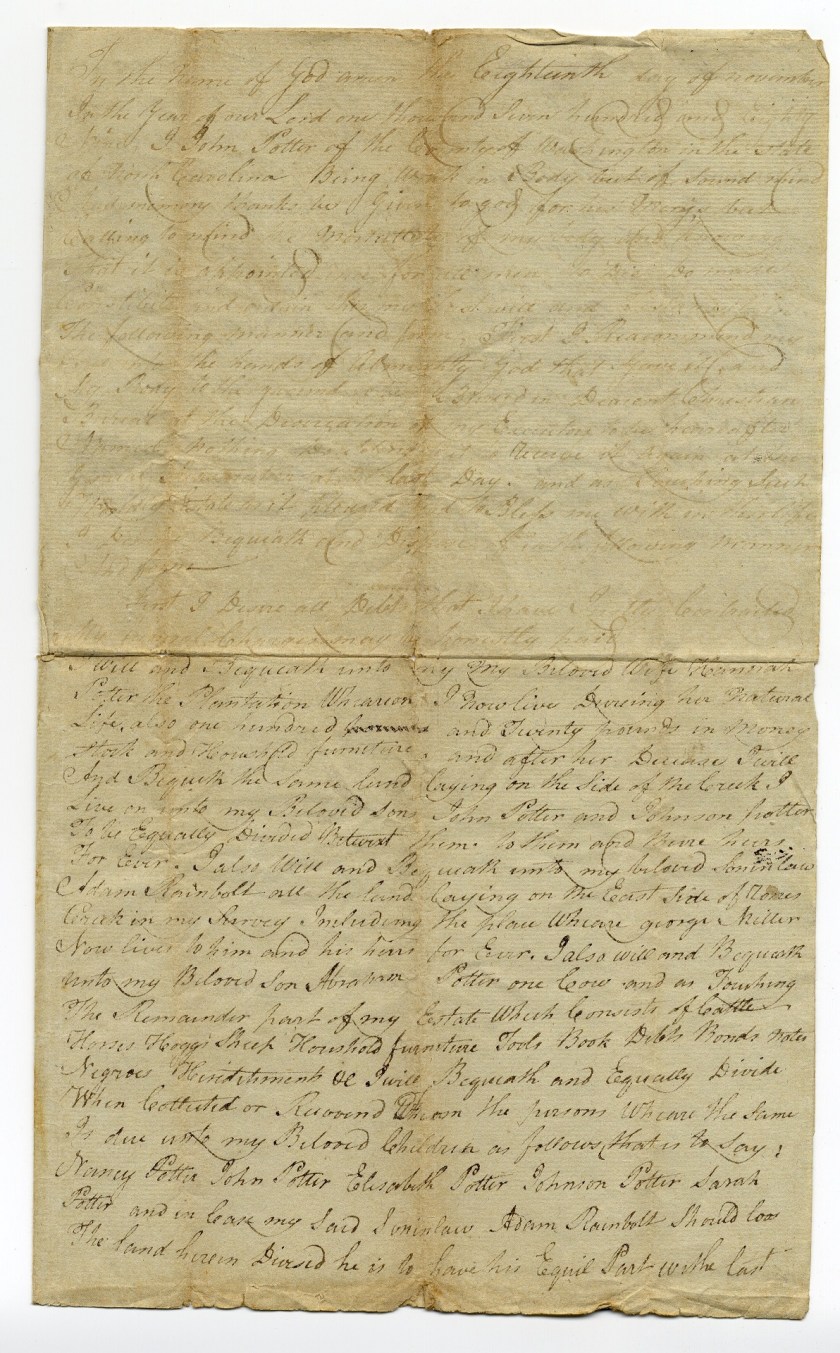 In the Name of God amen the Eighteenth day of november
In the Year of our Lord one thousand Seven hundred and Eighty
Nine I John Potter of the County of Washington in the State
of North Carolina Being Weak in Body but of Sound mind
And memory thanks be Given to god for his Mercys but
Calling to mind the Mortality of my body and knowing
that it is appointed for all men to Die Do make
Constitute and ordain this my last will and in
The following manner and form. First I Recommend my
the hands of Almighty God that Gave it and
My Body to the ground to be Buried in Deacent Christian
Burial at the Discreation of my Executors hereafter
Named Nothing Doubting to Receive it Again at the
last Day. and as Touching Such
Worldly Estate as it pleased God to Bless me with in this life
I Bequeath and Dispose of in the following manner
And form
First I Desire all Debts that I have Justly Contracted
may be honestly paid
I will and Bequeath unto my my Beloved Wife Hannah
Potter the Plantation Wheareon I now live During her Natural
Life, also one hundred and Twenty pounds in Money
Stock and Houshold furniture and after her Decease I will
And Bequeth the Same land laying on the Side of the Creek I
Live on unto my Beloved Sons John Potter and Johnson potter
To be Equally Divided Betwext them. to them and there heirs
For Ever. I also Will and Bequeath unto my beloved Soninlaw
Adam Rainbolt all the land laying on the East Side of Rones
Creek in my Survey Including the place Wheare george Miller
Now lives to him and his heirs for Ever. I also will and Bequeath
unto my Beloved Son Abraham Potter one Cow and as Touching
The Remainder part of my Estate Which Consists of Cattle
Horses Hoggs Sheep Houshold furniture Tools Book Debts Bonds notes
Negroes Heriditiments &c I will Bequeath and Equally Divide
When Collected or Recovered from the persons Wheare the Same
Is due unto my Beloved Children as follows, that is to Say;
Nancy Potter John Potter Elisabeth Potter Johnson Potter Sarah
Potter and in Case my Said Soninlaw Adam Rainbolt Should loos
The land herein Divised he is to have his Equil Part withe last